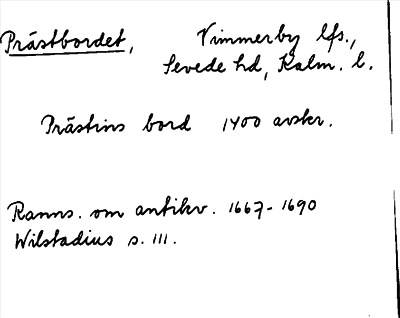 Prästbordet, Vimmerby lfs.,
Sevede hd, Kalm. l.
Prästins bord 1400 avskr.
Ranns. om antikv. 1667-1690
Wilstadius s. 111.